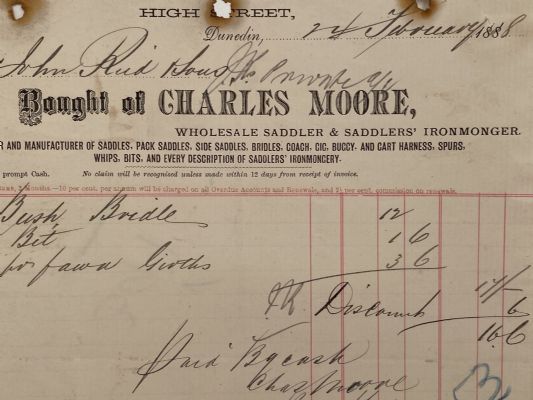 HIGH STREET,
Dunedin, 24 February 1888
John Reid & Sons Private a/c
Bought of CHARLES MOORE,
WHOLESALE SADDLER & SADDLERS' IRONMONGER.
R AND MANUFACTURER OF SADDLES, PACK SADDLES, SIDE SADDLES, BRIDLES, COACH, GIG, BUGGY, AND CART HARNESS, SPURS,
WHIPS, BITS, AND EVERY DESCRIPTION OF SADDLERS' IRONMONGERY.
prompt Cash. No claim will be recognised unless made within 12 days from receipt of invoice.
3 Months—10 per cent. per annum will be charged on all Overdue Accounts and Renewals, and 2½ per cent. commission on renewals.
Bush Bridle 12
Bit 1 6
pr fawn Girths 3 6
17/-
Discount 6
16 6
Paid By cash
Chas Moore